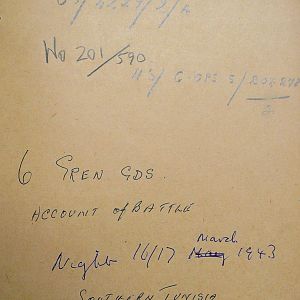 No 201/590
HS/C-OPS 5/
6 GREN GDS.
ACCOUNT of BATTLE
March
Night 16/17 May 1943
SOUTHERN TUNISIA